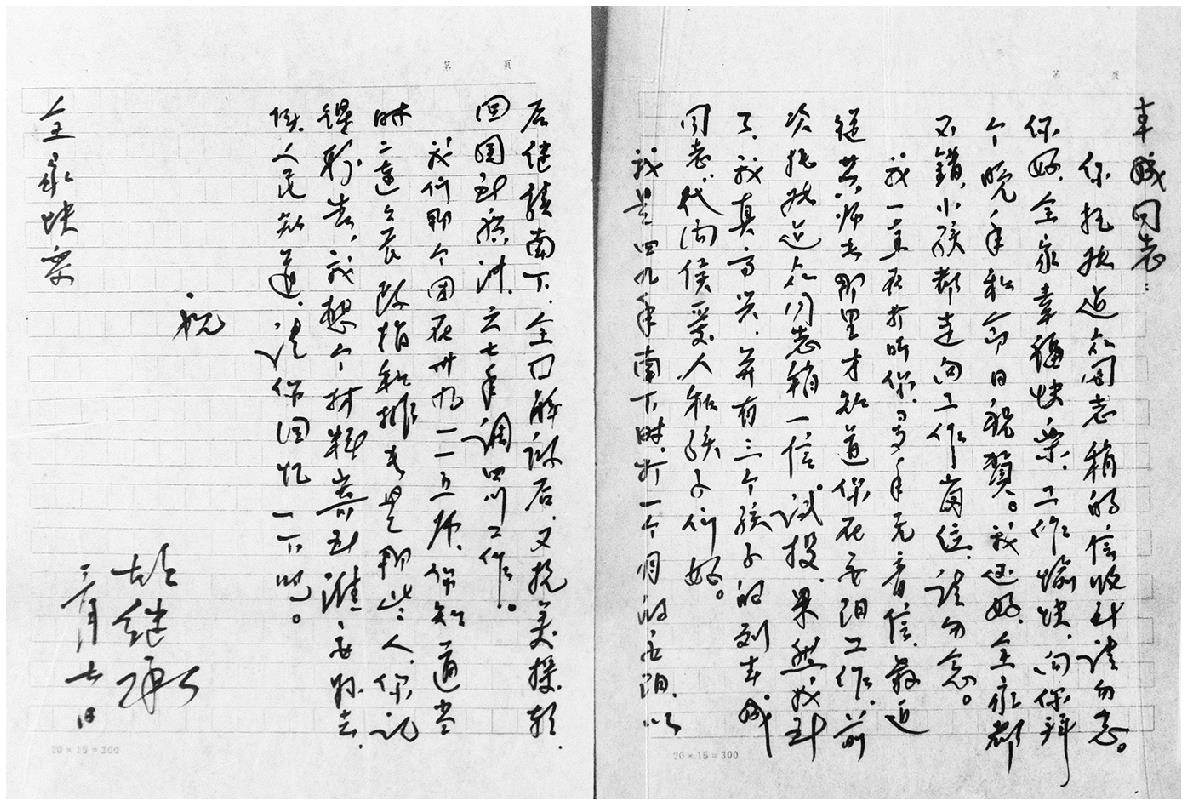 第 页
车城同志：
你托姚道众同志稍的信收到请勿念。
你好，全家幸福快乐，工作愉快，向你拜
个晚年和节日祝贺。我还好，全家都
不错，小孩都走向工作岗位，请勿念。
我一直在打听你，多年无音信，最近
从师去那里才知道你在安阳工作，前
次托姚道众同志稍一信试投，果然收到
了，我真高兴，并有三个孩子的
同志，代向侯爱人和孩子们好。
我是四九年南下时，打一个月的安阳，以
20×15=300
第 页
后继续南下，全国解放后，又抗美援朝，
回国到 六七年调四川工作。
我们那个团在卅九一一五师，你知道当
时二连连长 指 是那些人，你记
得 我想个材料寄到淮安县去，
人民知道，请你回忆一下吗。
祝
全家快乐
胡继承
二月七日
20×15=300